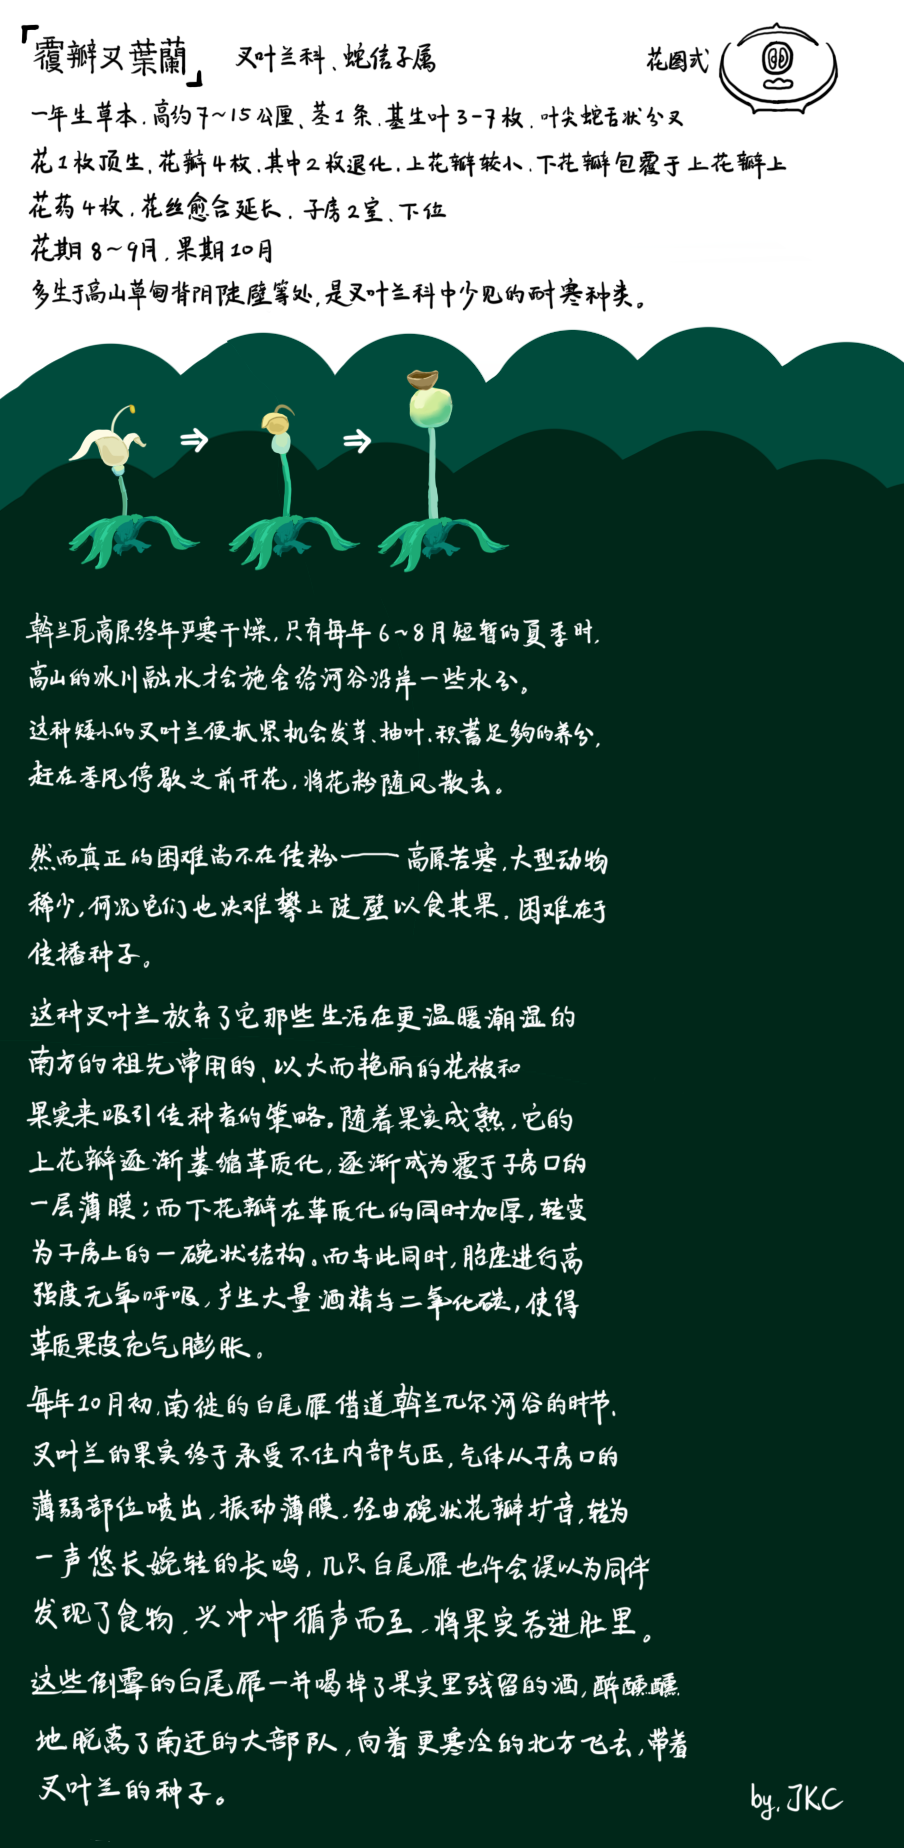 「覆瓣叉葉蘭」 叉叶兰科、蛇信子属 花图式
一年生草本,高约7~15公厘、茎1条,基生叶3-7枚,叶尖蛇舌状分叉
花1枚顶生,花瓣4枚,其中2枚退化,上花瓣较小,下花瓣包覆于上花瓣上
花药4枚,花丝愈合延长,子房2室、下位
花期8~9月,果期10月
多生于高山草甸背阴陡壁等处,是叉叶兰科中少见的耐寒种类。
斡兰瓦高原终年严寒干燥,只有每年6~8月短暂的夏季时,
高山的冰川融水才会施舍给河谷沿岸一些水分。
这种矮小的叉叶兰便抓紧机会发芽、抽叶、积蓄足够的养分,
赶在季风停歇之前开花,将花粉随风散去。
然而真正的困难尚不在传粉——高原苦寒,大型动物
稀少,何况它们也决难攀上陡壁以食其果,困难在于
传播种子。
这种叉叶兰放弃了它那些生活在更温暖潮湿的
南方的祖先常用的、以大而艳丽的花被和
果实来吸引传种者的策略。随着果实成熟,它的
上花瓣逐渐萎缩革质化,逐渐成为覆于子房口的
一层薄膜;而下花瓣在革质化的同时加厚,转变
为子房上的一碗状结构。而与此同时,胎座进行高
强度无氧呼吸,产生大量酒精与二氧化碳,使得
革质果皮充气膨胀。
每年10月初,南徙的白尾雁借道斡兰兀尔河谷的时节,
叉叶兰的果实终于承受不住内部气压,气体从子房口的
薄弱部位喷出,振动薄膜,经由碗状花瓣扩音,转为
一声悠长婉转的长鸣,几只白尾雁也许会误以为同伴
发现了食物,兴冲冲循声而至,将果实吞进肚里。
这些倒霉的白尾雁一并喝掉了果实里残留的酒,醉醺醺
地脱离了南迁的大部队,向着更寒冷的北方飞去,带着
叉叶兰的种子。
by.JKC